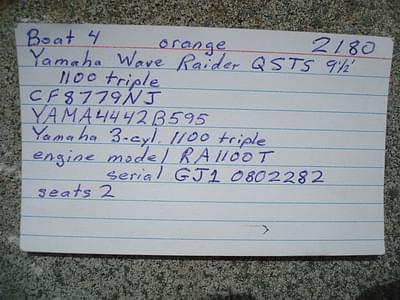 Boat 4 orange 2180
Yamaha Wave Raider QSTS 9½'
1100 triple
CF8779NJ
YAMA4442B595
Yamaha 3-cyl. 1100 triple
engine model RA1100T
serial GJ1 0802282
seats 2